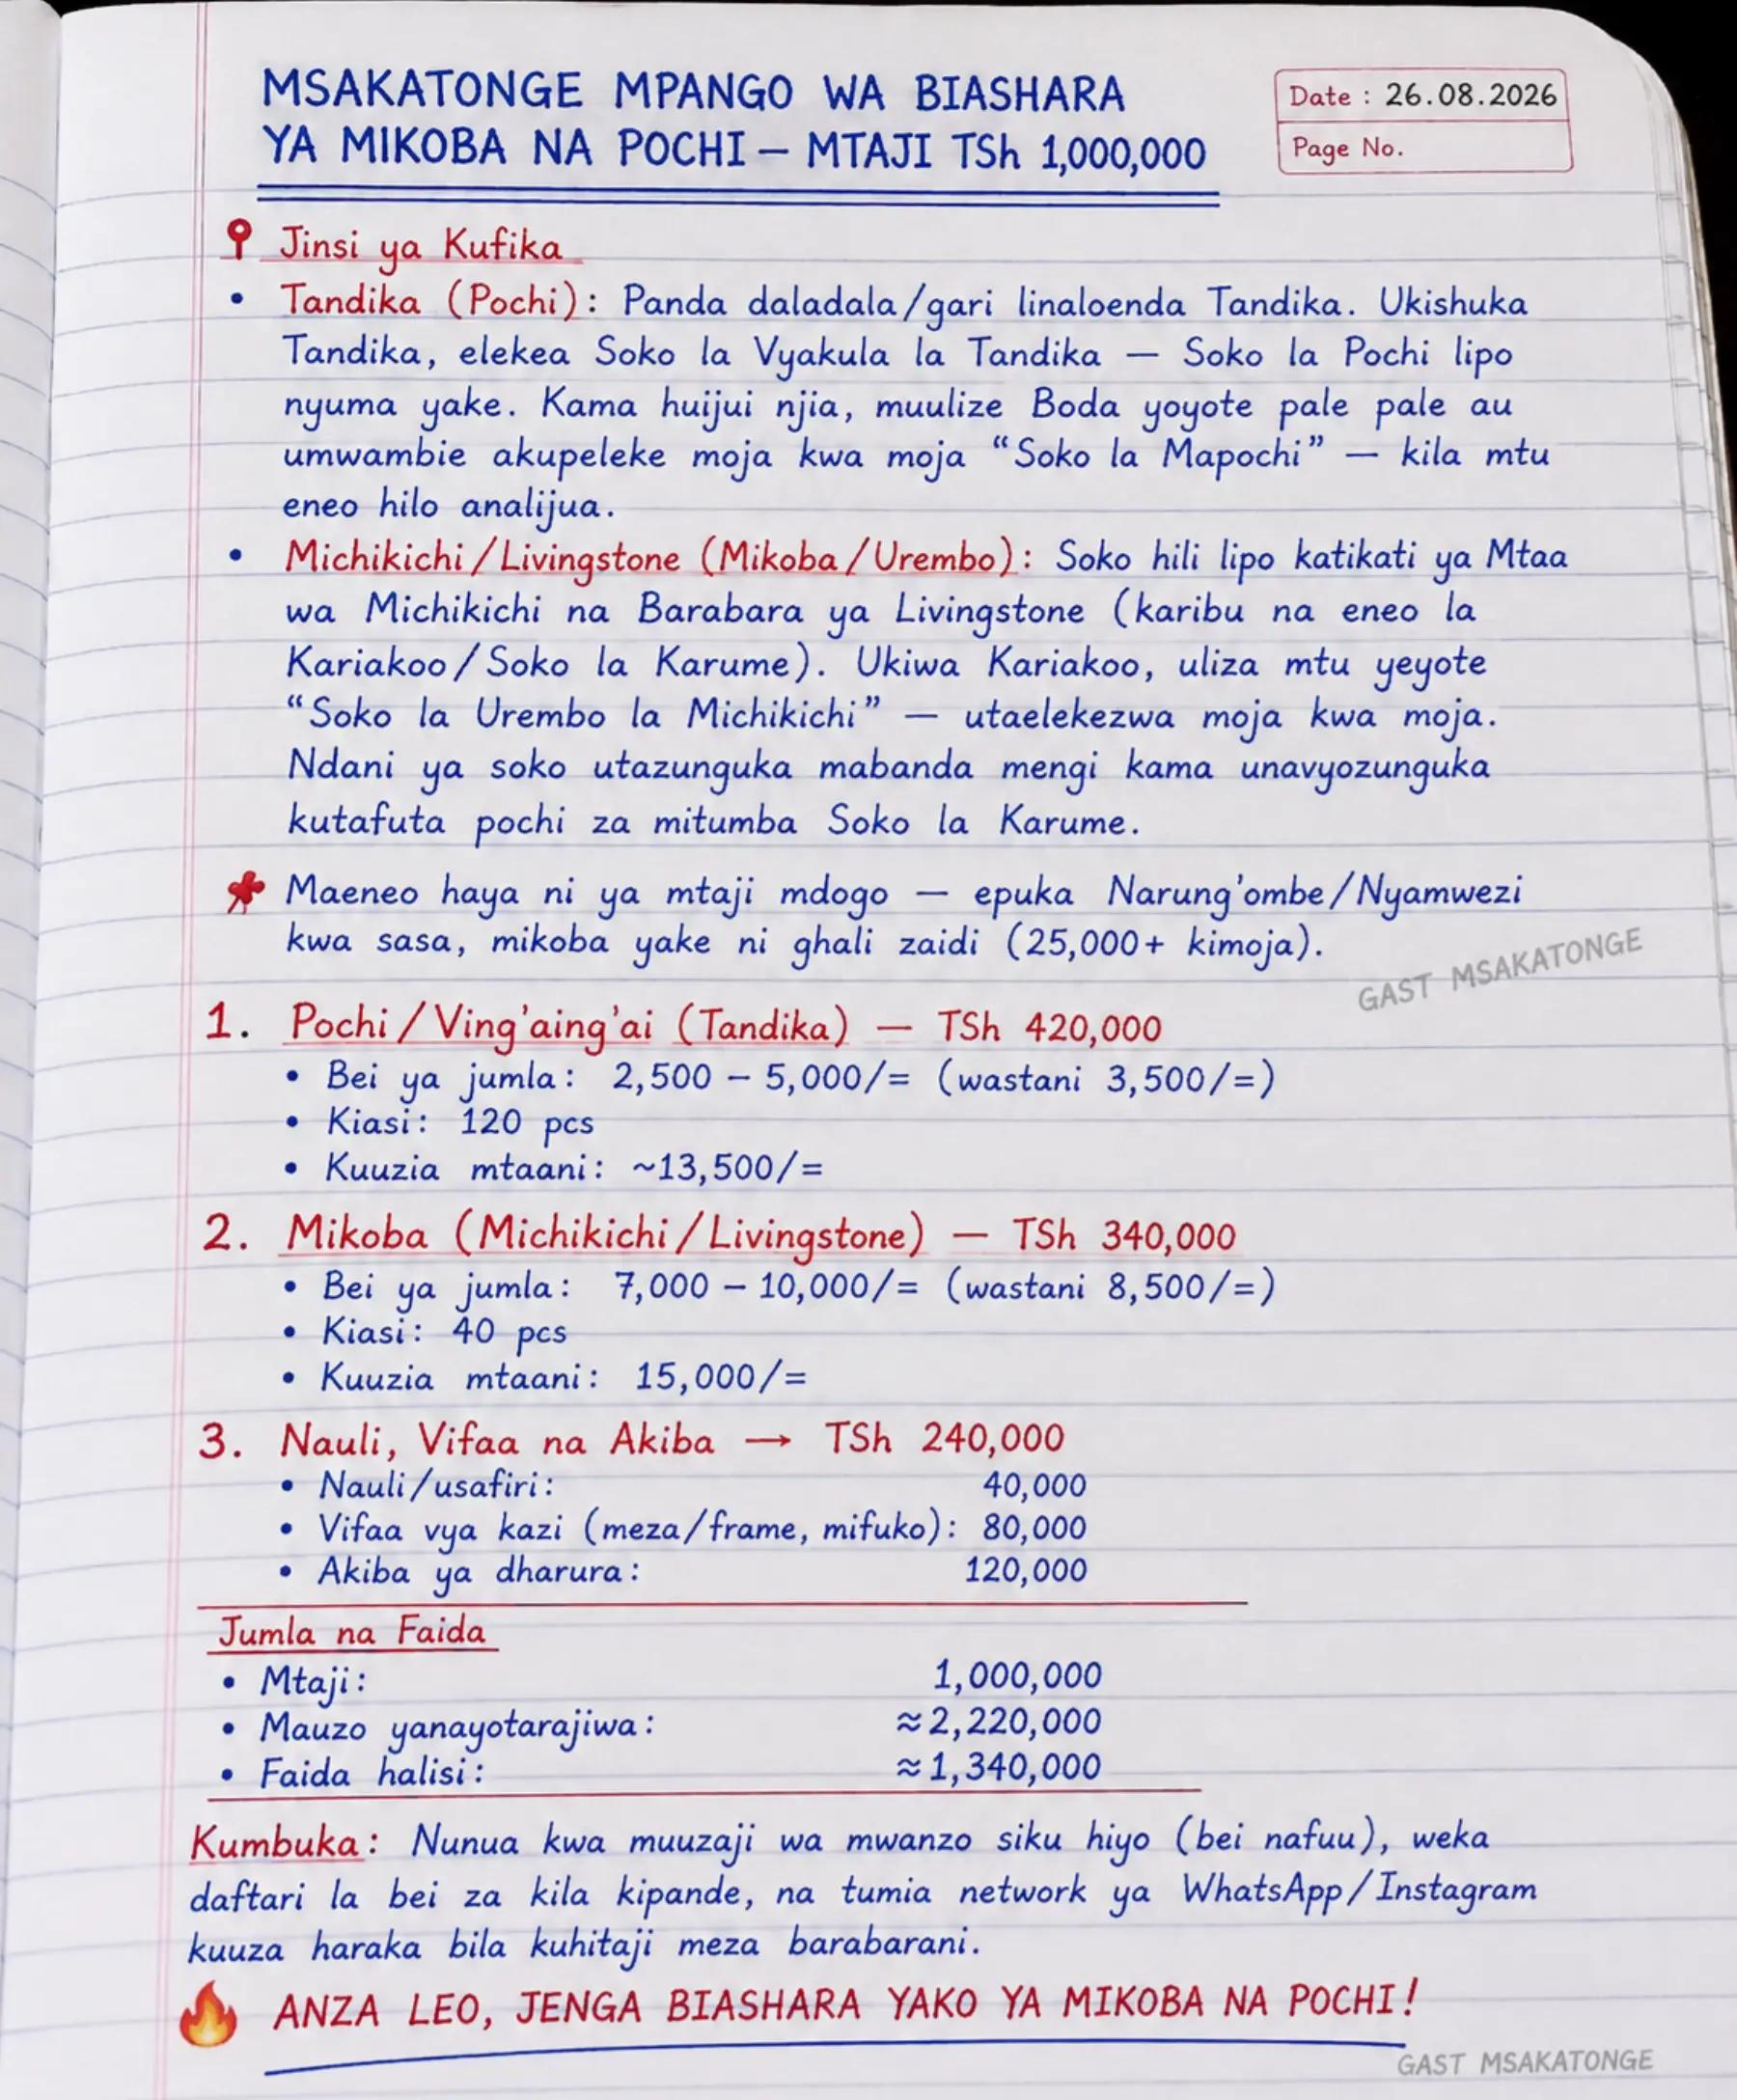 MSAKATONGE MPANGO WA BIASHARA
YA MIKOBA NA POCHI – MTAJI TSh 1,000,000
Date : 26.08.2026
Page No.
Jinsi ya Kufika
• Tandika (Pochi): Panda daladala/gari linaloenda Tandika. Ukishuka
Tandika, elekea Soko la Vyakula la Tandika — Soko la Pochi lipo
nyuma yake. Kama huijui njia, muulize Boda yoyote pale pale au
umwambie akupeleke moja kwa moja “Soko la Mapochi” — kila mtu
eneo hilo analijua.
• Michikichi/Livingstone (Mikoba/Urembo): Soko hili lipo katikati ya Mtaa
wa Michikichi na Barabara ya Livingstone (karibu na eneo la
Kariakoo/Soko la Karume). Ukiwa Kariakoo, uliza mtu yeyote
“Soko la Urembo la Michikichi” — utaelekezwa moja kwa moja.
Ndani ya soko utazunguka mabanda mengi kama unavyozunguka
kutafuta pochi za mitumba Soko la Karume.
Maeneo haya ni ya mtaji mdogo — epuka Narung'ombe/Nyamwezi
kwa sasa, mikoba yake ni ghali zaidi (25,000+ kimoja).
GAST MSAKATONGE
1. Pochi/Ving'aing'ai (Tandika) — TSh 420,000
• Bei ya jumla: 2,500 – 5,000/= (wastani 3,500/=)
• Kiasi: 120 pcs
• Kuuzia mtaani: ~13,500/=
2. Mikoba (Michikichi/Livingstone) — TSh 340,000
• Bei ya jumla: 7,000 – 10,000/= (wastani 8,500/=)
• Kiasi: 40 pcs
• Kuuzia mtaani: 15,000/=
3. Nauli, Vifaa na Akiba → TSh 240,000
• Nauli/usafiri: 40,000
• Vifaa vya kazi (meza/frame, mifuko): 80,000
• Akiba ya dharura: 120,000
Jumla na Faida
• Mtaji: 1,000,000
• Mauzo yanayotarajiwa: ≈2,220,000
• Faida halisi: ≈1,340,000
Kumbuka: Nunua kwa muuzaji wa mwanzo siku hiyo (bei nafuu), weka
daftari la bei za kila kipande, na tumia network ya WhatsApp/Instagram
kuuza haraka bila kuhitaji meza barabarani.
ANZA LEO, JENGA BIASHARA YAKO YA MIKOBA NA POCHI!
GAST MSAKATONGE